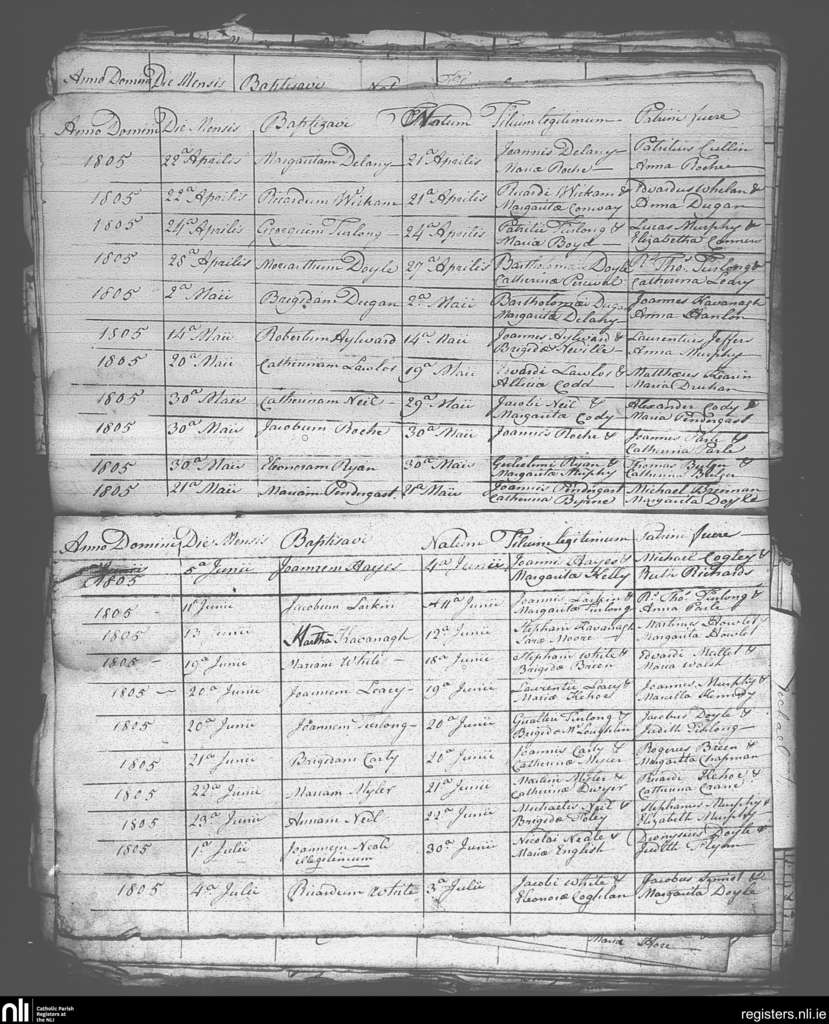 Anno Domini Die Mensis Baptisavi
Anno Domini Die Mensis Baptizavi Natum Filium legitimum Patrini fuere
1805 22a Aprilis Margaritam Delany 21a Aprilis Joannis Delany Patritius Cullin
Mariæ Roche Anna Roche
1805 22a Aprilis Ricardum Wickam 21a Aprilis Ricardi Wickam & Edwardus Whelan &
Margaritæ Conway Anna Dugan
1805 24a Aprilis Georgium Furlong 24a Aprilis Patritii Furlong & Lucas Murphy &
Maria Boyd Elizabetha Conners
1805 28a Aprilis Doyle 27a Aprilis Bartholomæi Doyle Rd Thos Furlong &
Catherinæ Catherina Leary
1805 2a Maii Brigidam Dugan 2a Maii Bartholomæi Dugan Joannes Kavanagh
Margarita Delahy Anna Hanlon
1805 14a Maii Robertum Aylward 14a Maii Joannes Aylward & Laurentius Jeffers
Brigidæ Neville Anna Murphy
1805 20a Maii Catherinam Lawlor 19a Maii Edwardi Lawlor & Matthæus
Codd Maria Druhan
1805 30a Maii Catherinam Neil 29a Maii Jacobi Neil & Alexander Cody &
Margarita Cody Maria Pendergast
1805 30a Maii Jacobum Roche 30a Maii Joannis Roche & Joannes Parle &
Catherina Parle
1805 30a Maii Eleonoram Ryan 30a Maii Gulielmi Ryan & Thomas &
Margaritæ Murphy Catherina
1805 21a Maii Mariam Pendergast 21a Maii Joannes Pendergast Michael Brennan
Catherina Byrne Margarita Doyle
Anno Domini Die Mensis Baptisavi Natum Filium legitimum Patrini fuere
1805 5a Junii Joannem Hayes 4a Junii Joannis Hayes & Michael Cogley &
Margarita Kelly Richards
1805 11 Junii Jacobum Larkin 11a Junii Joannis Larkin & Rd Thos Furlong &
Margaritæ Furlong Anna Parle
1805 13 Junii Martha Kavanagh 12a Junii Stephani Kavanagh Martinus Howlet
Saræ Moore Margarita Howlet
1805 19a Junii Mariam White 18a Junii Stephani White & Edwardi &
Brigidæ Breen Maria Walsh
1805 20a Junii Joannem Leacy 19a Junii Laurentii Leacy & Joannes Murphy &
Mariæ Kehoe Marcella Kennedy
1805 20a Junii Joannem Furlong 20a Junii Gualteri Furlong & Jacobus Doyle &
Brigidæ McLoughlan Judith Furlong
1805 21a Junii Brigidam Carty 20a Junii Joannis Carty & Rogerus Breen &
Catherinæ Margarita Chapman
1805 22a Junii Mariam Myler 21a Junii Martin Myler & Ricardi Kehoe &
Catherinæ Dwyer Catherina Crane
1805 23a Junii Annam Neil 22a Junii Michaelis Neil & Stephanus Murphy &
Brigidæ Foley Elizabeth Murphy
1805 1a Julii Joannem Neale 30a Junii Nicolai Neale & Dionysius Doyle &
illegitimum Mariæ English Judith Flynn
1805 4a Julii Ricardum White 3a Julii Jacobi White & Jacobus &
Eleonoræ Coghlan Margarita Doyle
Maria Hore
nli Catholic Parish
Registers at
the NLI
registers.nli.ie